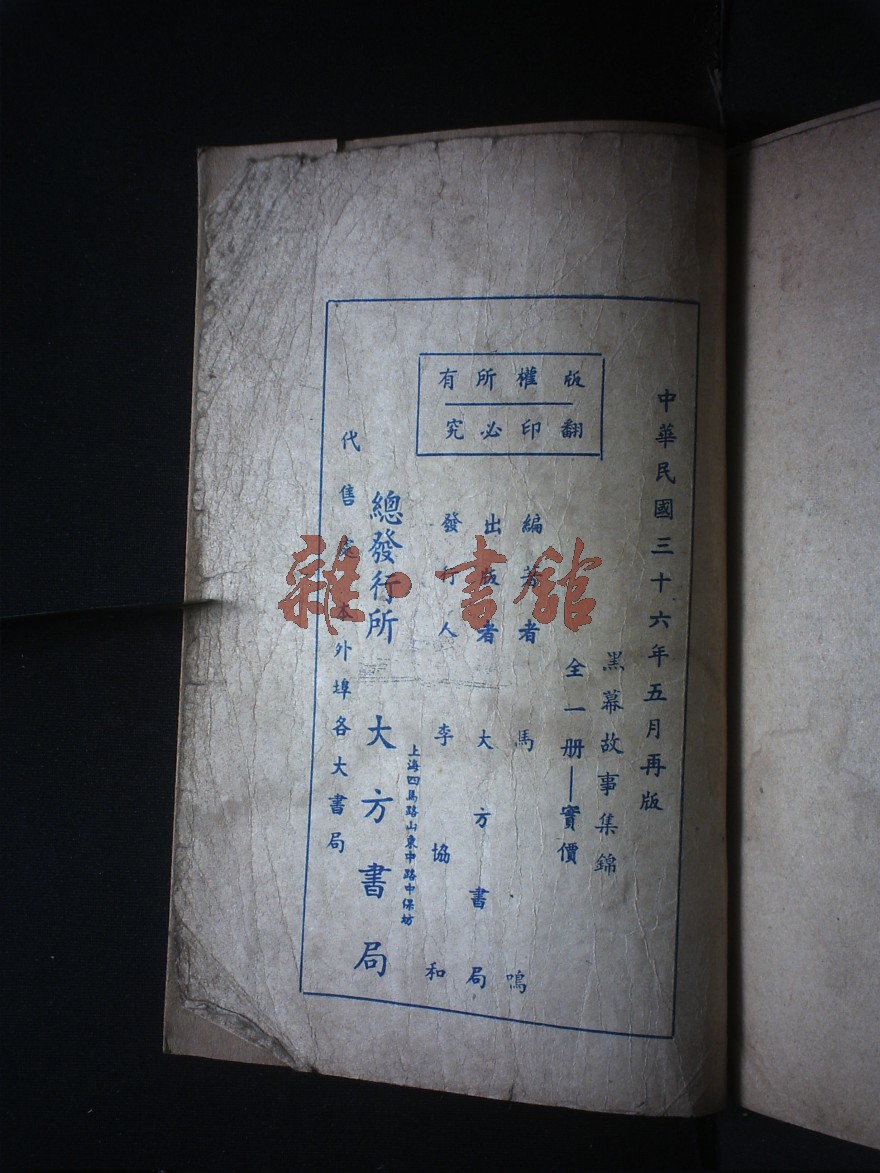 中華民國三十六年五月再版
黑幕故事集錦
全一册—實價
版權所有
翻印必究
編著者 馬鳴
出版者 大方書局
發行人 李協和
上海四馬路山東中路中保坊
總發行所 大方書局
代售處 本外埠各大書局
雜·書館